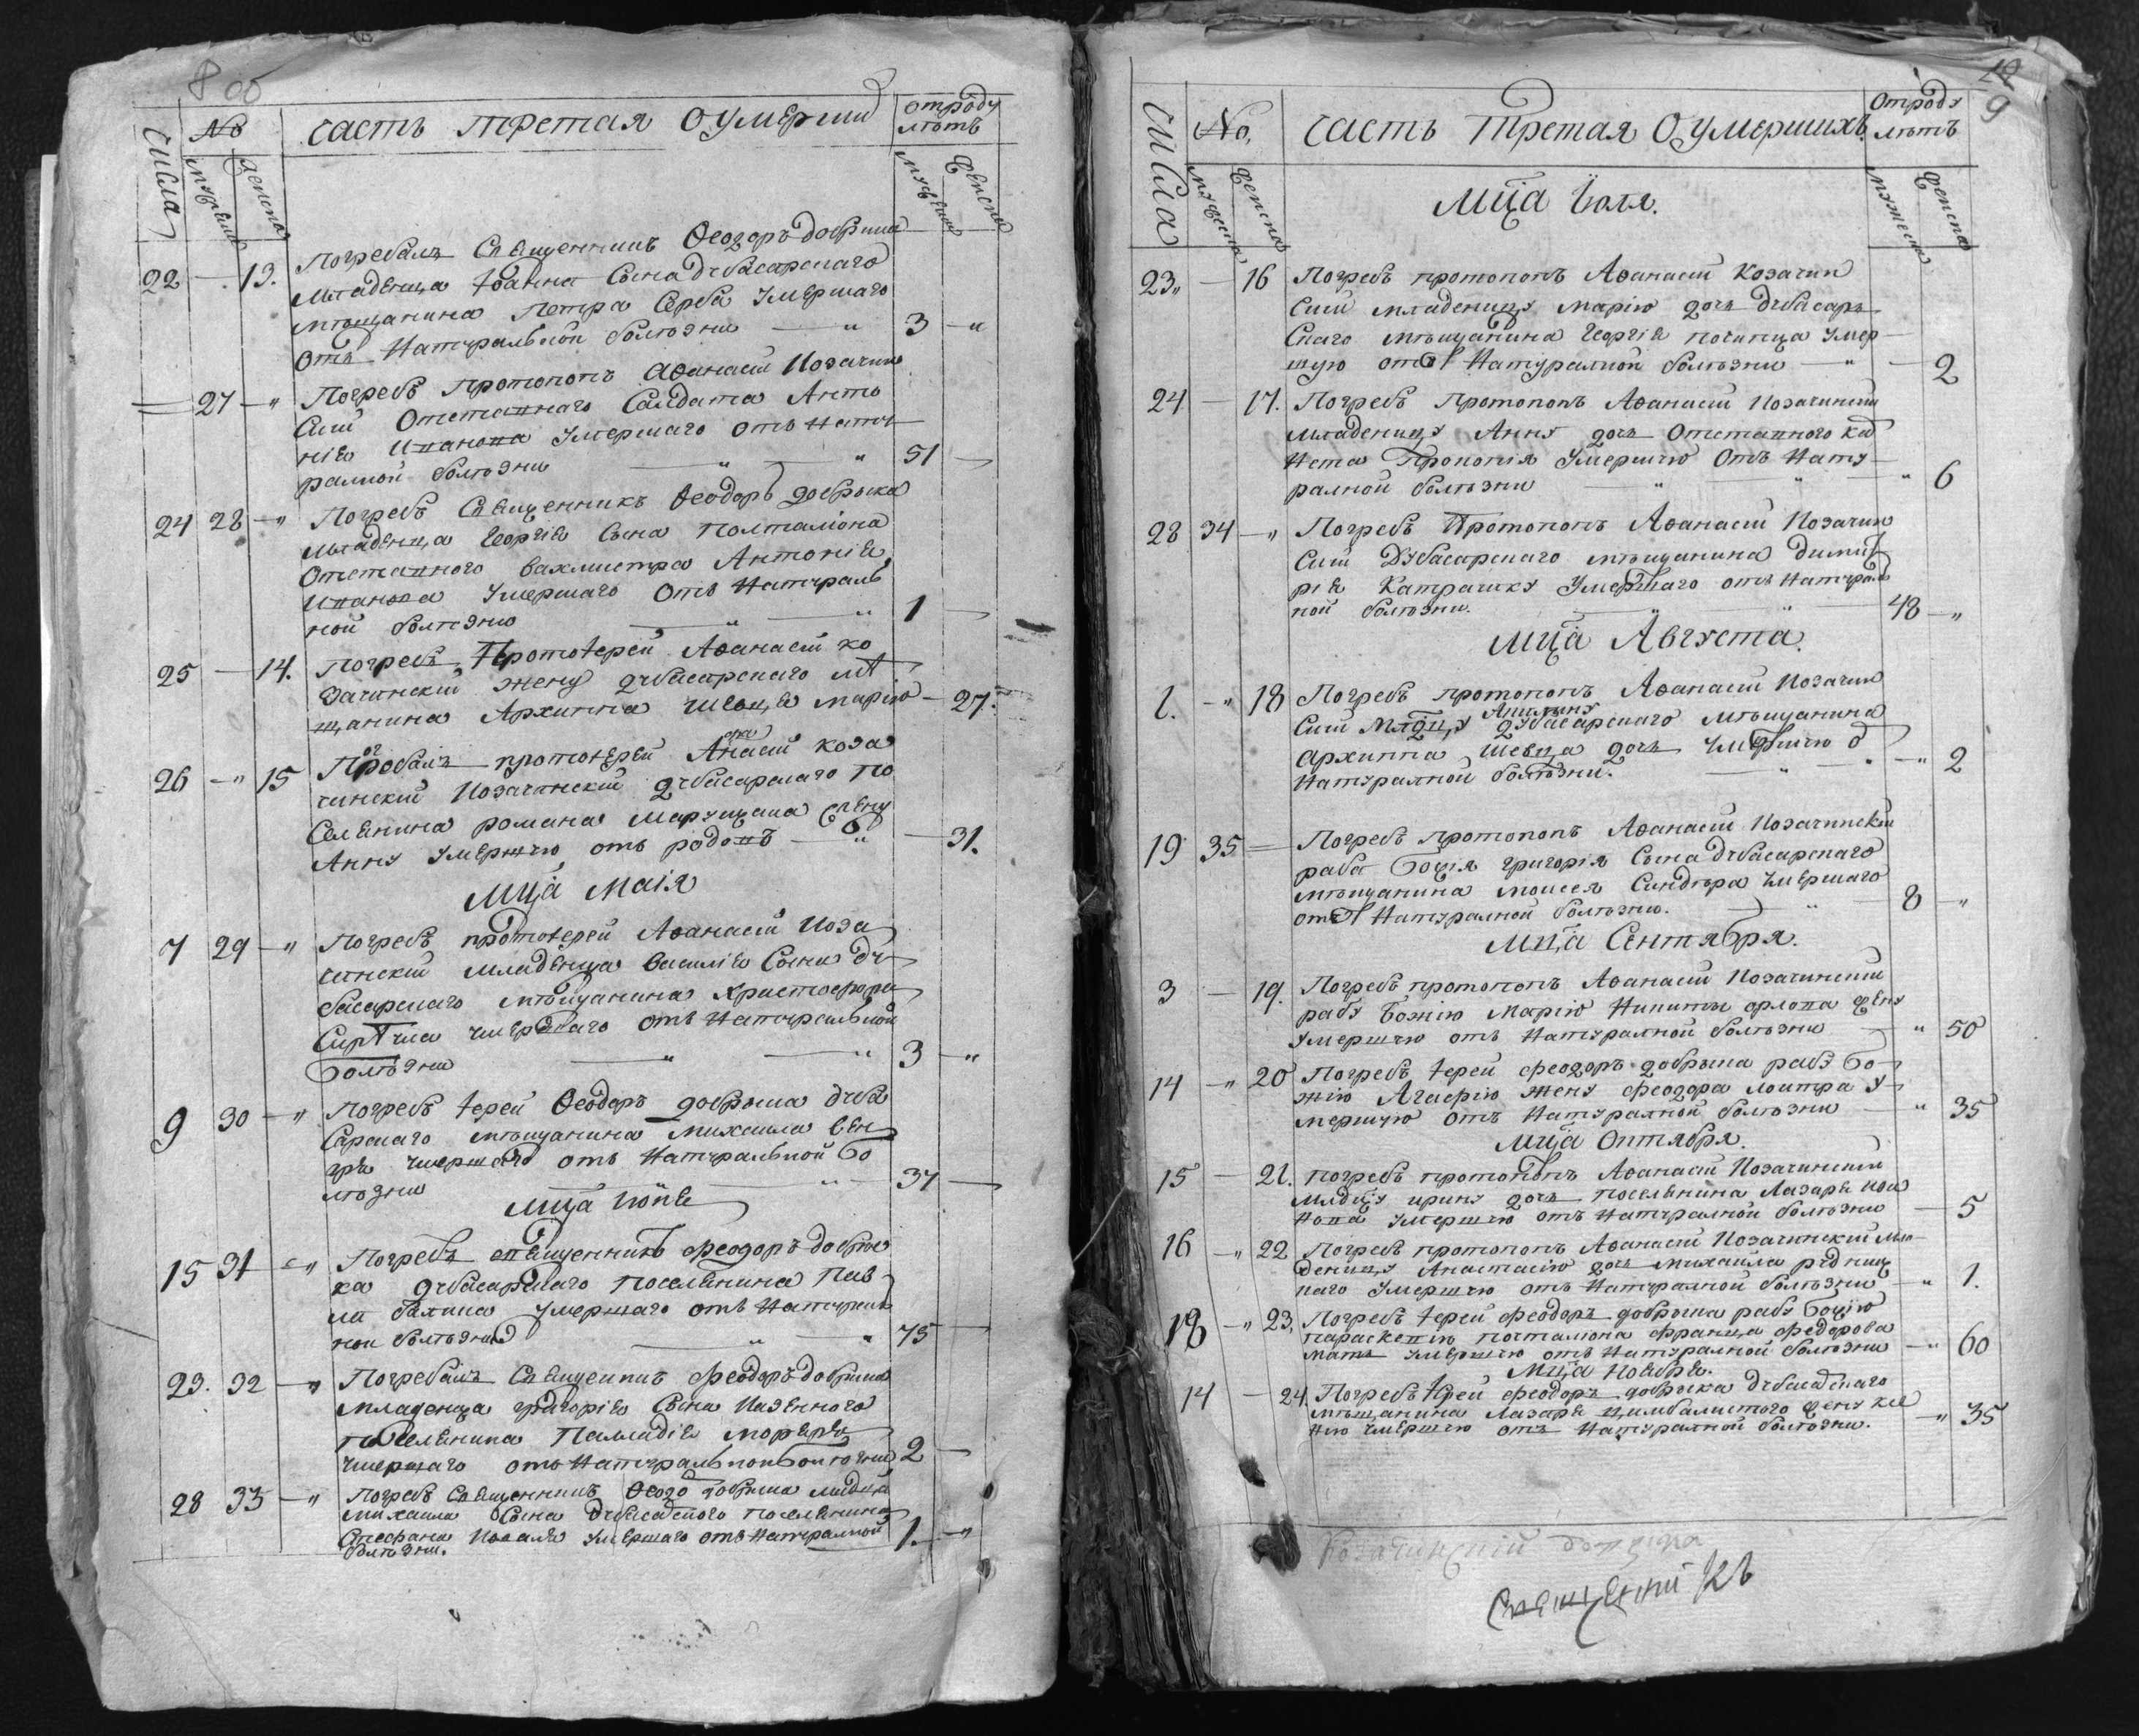 8 об
числа
No
мужеска
женска
часть третая о умерши
отроду
лѣтъ
мужеска
женска
22 — 13. Погребалъ Священникъ Ѳеодоръ добрика
младенца Іоанна Сына дубасарскаго
мѣщанина Петра Серба Умершаго
отъ Натуральной болѣзни — " 3 — "
27 — " Погребъ Протопопъ Аѳанасій Козачин
Скій Отставнаго Салдата Анто
нія Иванова Умершаго отъ Нату
ралной болѣзни — " — " 51 —
24 28 — " Погребъ Священникъ Ѳеодоръ добрыка
младенца Георгія Сына Полталіона
Отставного вахмистра Антонія
Иванова Умершаго Отъ Натураль
ной болѣзни — " — " 1 —
25 — 14. Погребъ Протоіерей Аѳанасій ко
зачинскій жену дубасарскаго мѣ
щанина Архиппа Шевця Марію — 27.
26 — " 15 протоіерей коза
чинскій Козачинскій дубасарскаго По
Селянина романа жену
Анну умершую отъ родовъ — " — 31.
Мц̃а Маія
7 29 — " Погребъ протоіерей Аѳанасій Коза
чинскій младенца Василія Сына ду
басарскаго мѣщанина Христофора
умершаго отъ Натуральной
болѣзни — " — " 3 — "
9 30 — " Погребъ іерей Ѳеодоръ добрыка дуба
Сарскаго мѣщанина Михаила вен
гра умершаго отъ Натуральной бо
лѣзни — " — 37 —
Мц̃а Іюня
15 31 — " Погребъ священникъ феодоръ добры
ка дубасарскаго поселянина Пав
ла балика умершаго отъ Натурал
ной болѣзни — " — " 75 —
23. 32 — " Погребалъ Священникъ феодоръ добрика
младенца григорія Сына Казенного
поселянина Палладія
умершаго отъ Натуральной болѣзни 2 —
28 33 — " Погребъ Священникъ Ѳеодо добрика младца
Михаила Сына поселянина
Стефана Коваля умершаго отъ Натуралной 1. — "
болѣзни.
9
числа
No.
мужеска
женска
часть Третая О умершихъ.
Отроду
лѣтъ
мужеска
женска
Мц̃а Іюля.
23 " — 16 Погребъ протопопъ Аѳанасій Козачин
Скій младеницу Марію дочь дубасар
Скаго мѣщанина Георгія Умер
шую отъ Натуралной болѣзни — " — 2
24 — 17. Погребъ Протопопъ Аѳанасій Козачинскій
младеницу Анну дочь Отставного
Умершую Отъ Нату
ралной болѣзни — " — " — " 6
28 34 — " Погребъ Протопопъ Аѳанасій Козачин
Скій Дубасарскаго мѣщанина Димит
рія Катрашку Умершаго отъ Натурал
ной болѣзни. — " — " 48 — "
Мц̃а Августа.
1. — " 18 Погребъ протопопъ Аѳанасій Козачин
Скій Млдц̃у Акилину дубасарскаго мѣщанина
Архиппа Шевца дочь умершую о̃
Натуралной болѣзни. — " — " — " 2
19 35 — Погребъ протопопъ Аѳанасій Козачинскій
раба божія григорія Сына дубасарскаго
мѣщанина Моисея умершаго
отъ Натуралной болѣзни. — " — 8 — "
Мц̃а Сентября.
3 — 19. Погребъ протопопъ Аѳанасій Козачинскій
рабу Божію Марію Никиты орлова жену
умершую отъ Натуралной болѣзни — " 50
14 — " 20 Погребъ іерей феодоръ добрыка рабу Бо
жію Агафію жену феодора у
мершую отъ Натуралной болѣзни — " 35
Мц̃а Октября.
15 — 21. погребъ протопопъ Аѳанасій Козачинскій
Млдц̃у ирину дочь поселянина Лазаря
умершую отъ Натуралной болѣзни — 5
16 — " 22 Погребъ протопопъ Аѳанасій Козачинскій мла
деницу Анастасію дочь Михаила
умершую отъ Натуралной болѣзни — " 1.
18 — " 23. Погребъ іерей феодоръ добрыка рабу божію
параскевію францa федорова
мать умершую отъ Натуралной болѣзни — " 60
Мц̃а Ноября.
14 — 24. Погребъ Іерей феодоръ добрыка
мѣщанина Лазаря цимбалистого жену
нію умершую отъ Натуралной болѣзни. — " 35
Козачинскій
Священникъ